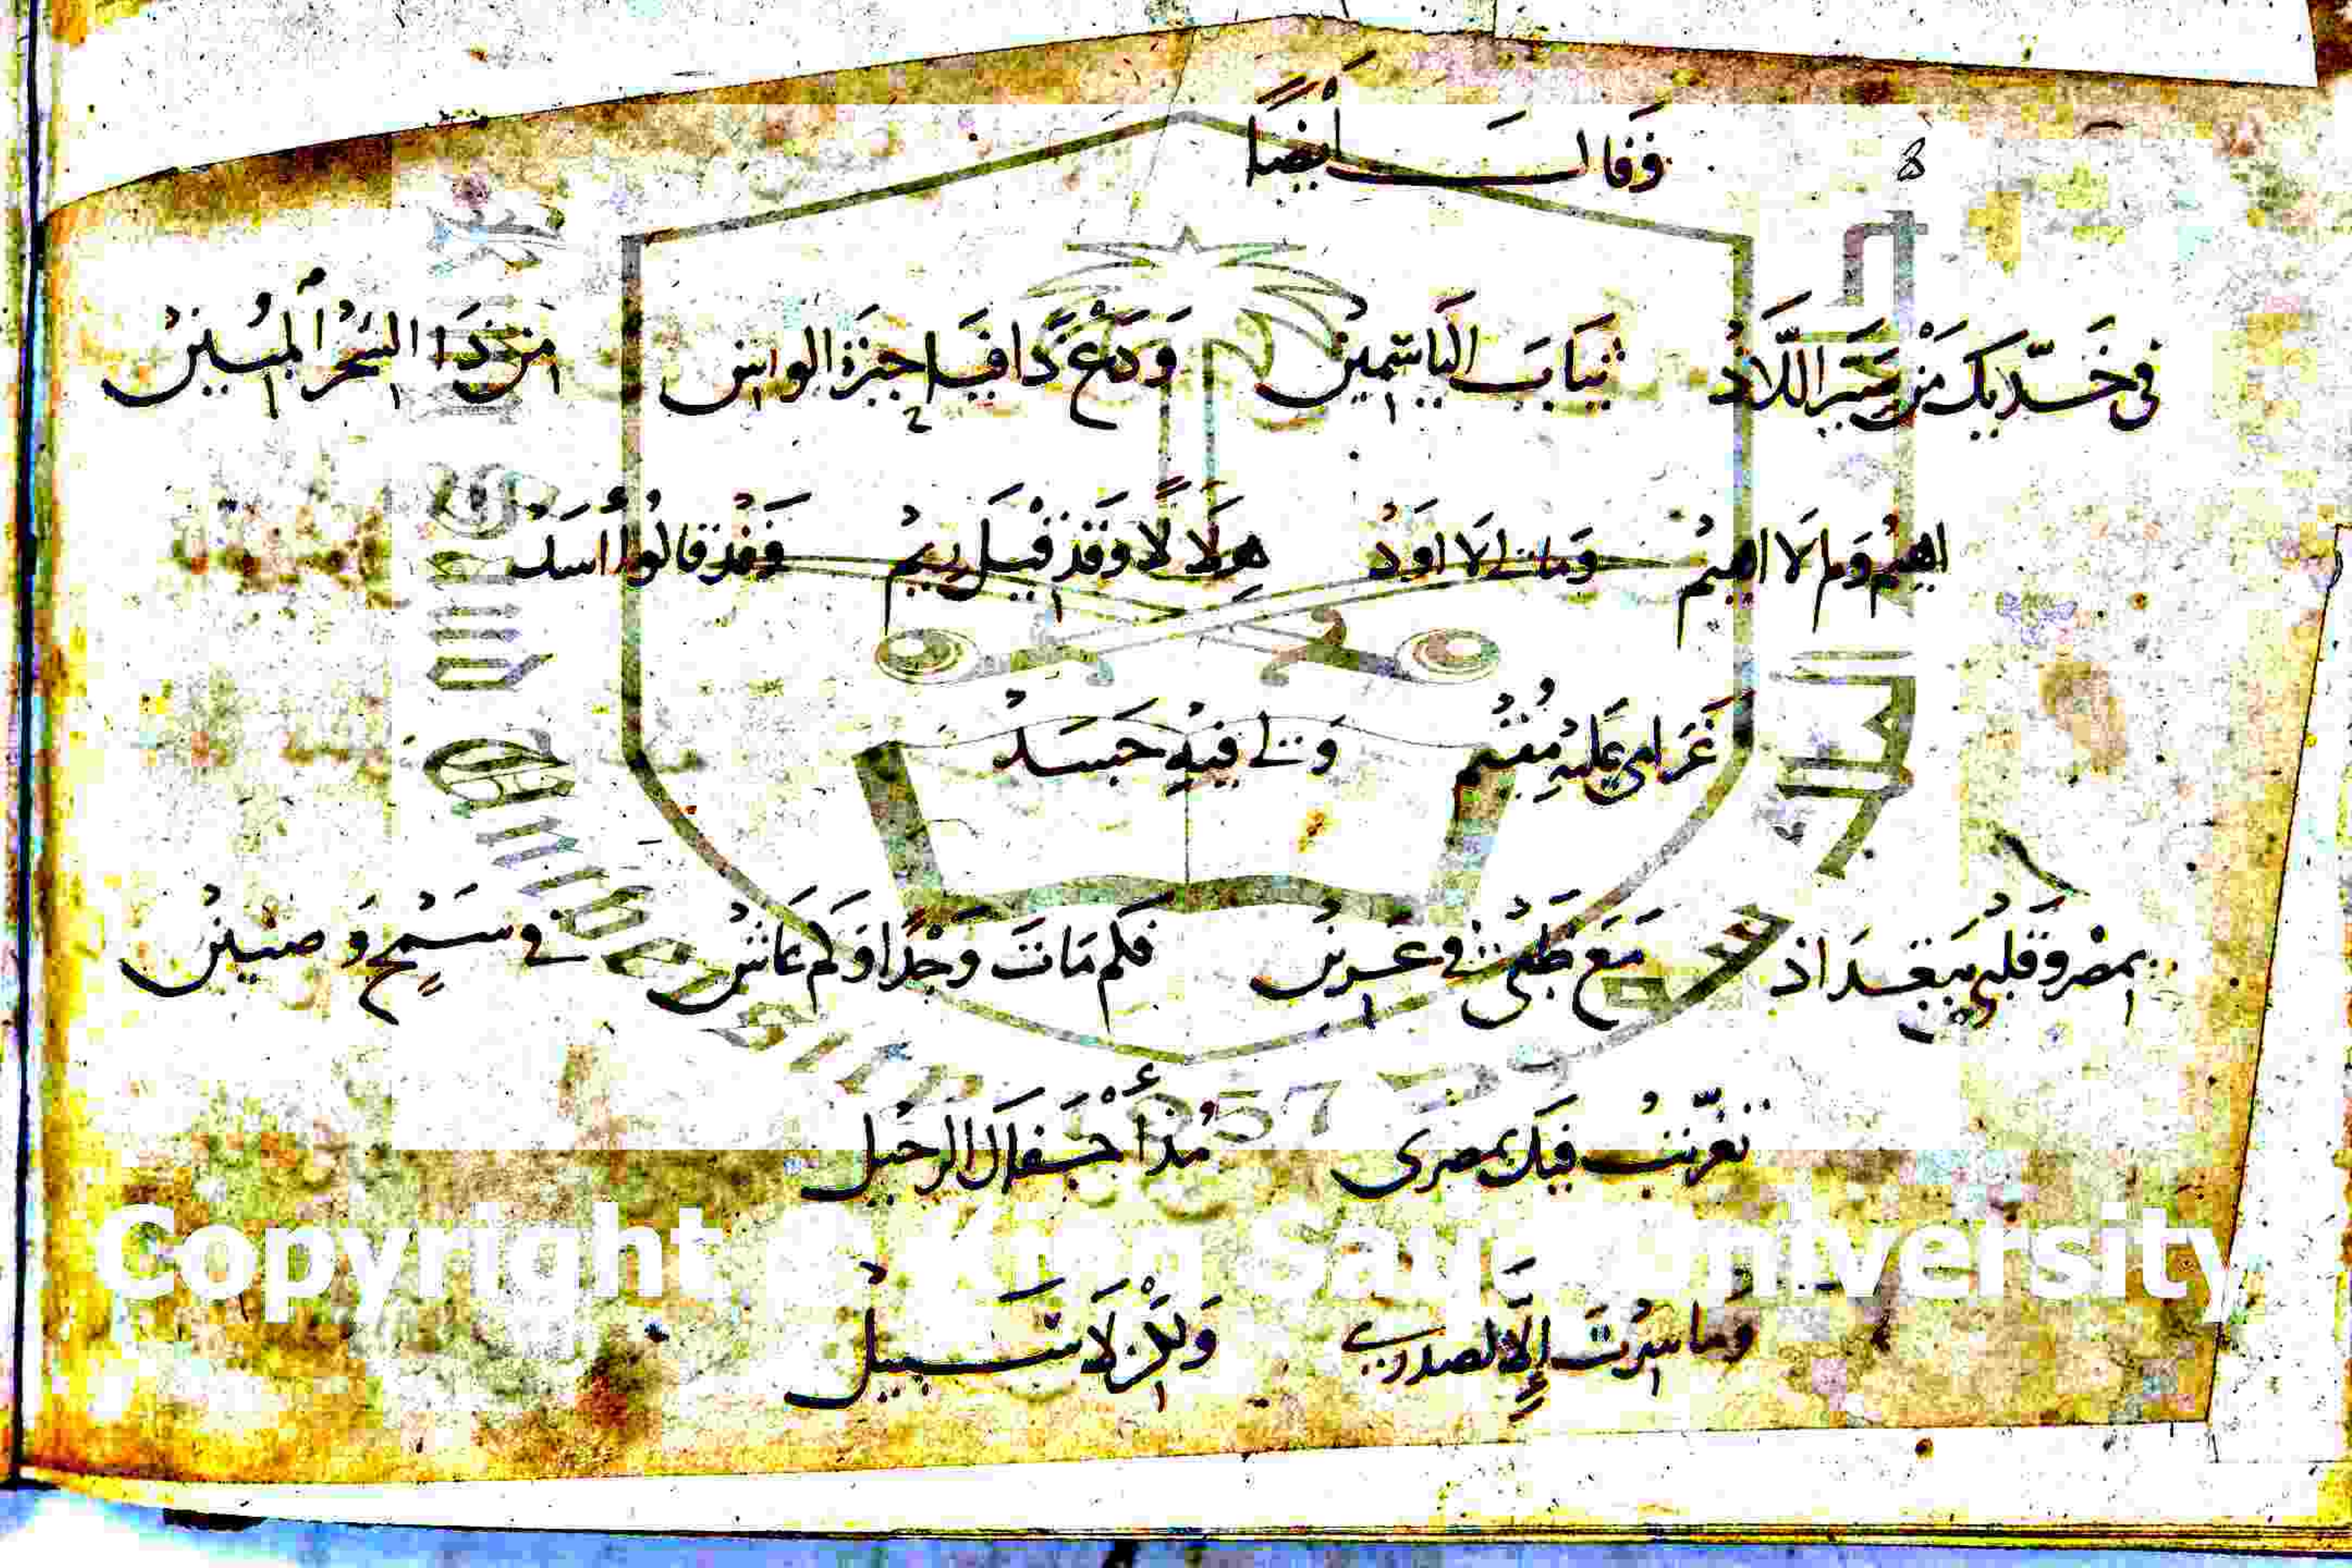 وَقَالَ أَيْضًا
8
في خَدّيك مَنْ صَيَّر اللَّاذْ ثيَابَ اليَاسَمِينْ وَدَعْ ذَا فيَا حيرَة الواسن من ذَا السِحْر المُبينْ
اهيمْ وَلم لَا اهيمْ وَمَالى لا اوَدْ هِلَالًا وَقَد قيْل ريمْ وَقَدْ قالُوا أسَدْ
غَرَامى عَليْهِ مُقيْم وَلى فيْهِ حَسَدْ
بمصْر وَقلبى ببَغدَاذ مَعَ ظَبْى فى عَرينْ فكم مَاتَ وَجْدًا وَكم عَاشْ فى سَمْحٍ وَضنينْ
تغرّبتُ فيك بمصرى مُذ أجْفَلَ الرحيلْ
وَما سرْتَ إلَّا لصدرى وَلَكنْ لَا سَبيلْ
Copyright © King Saud University
1957